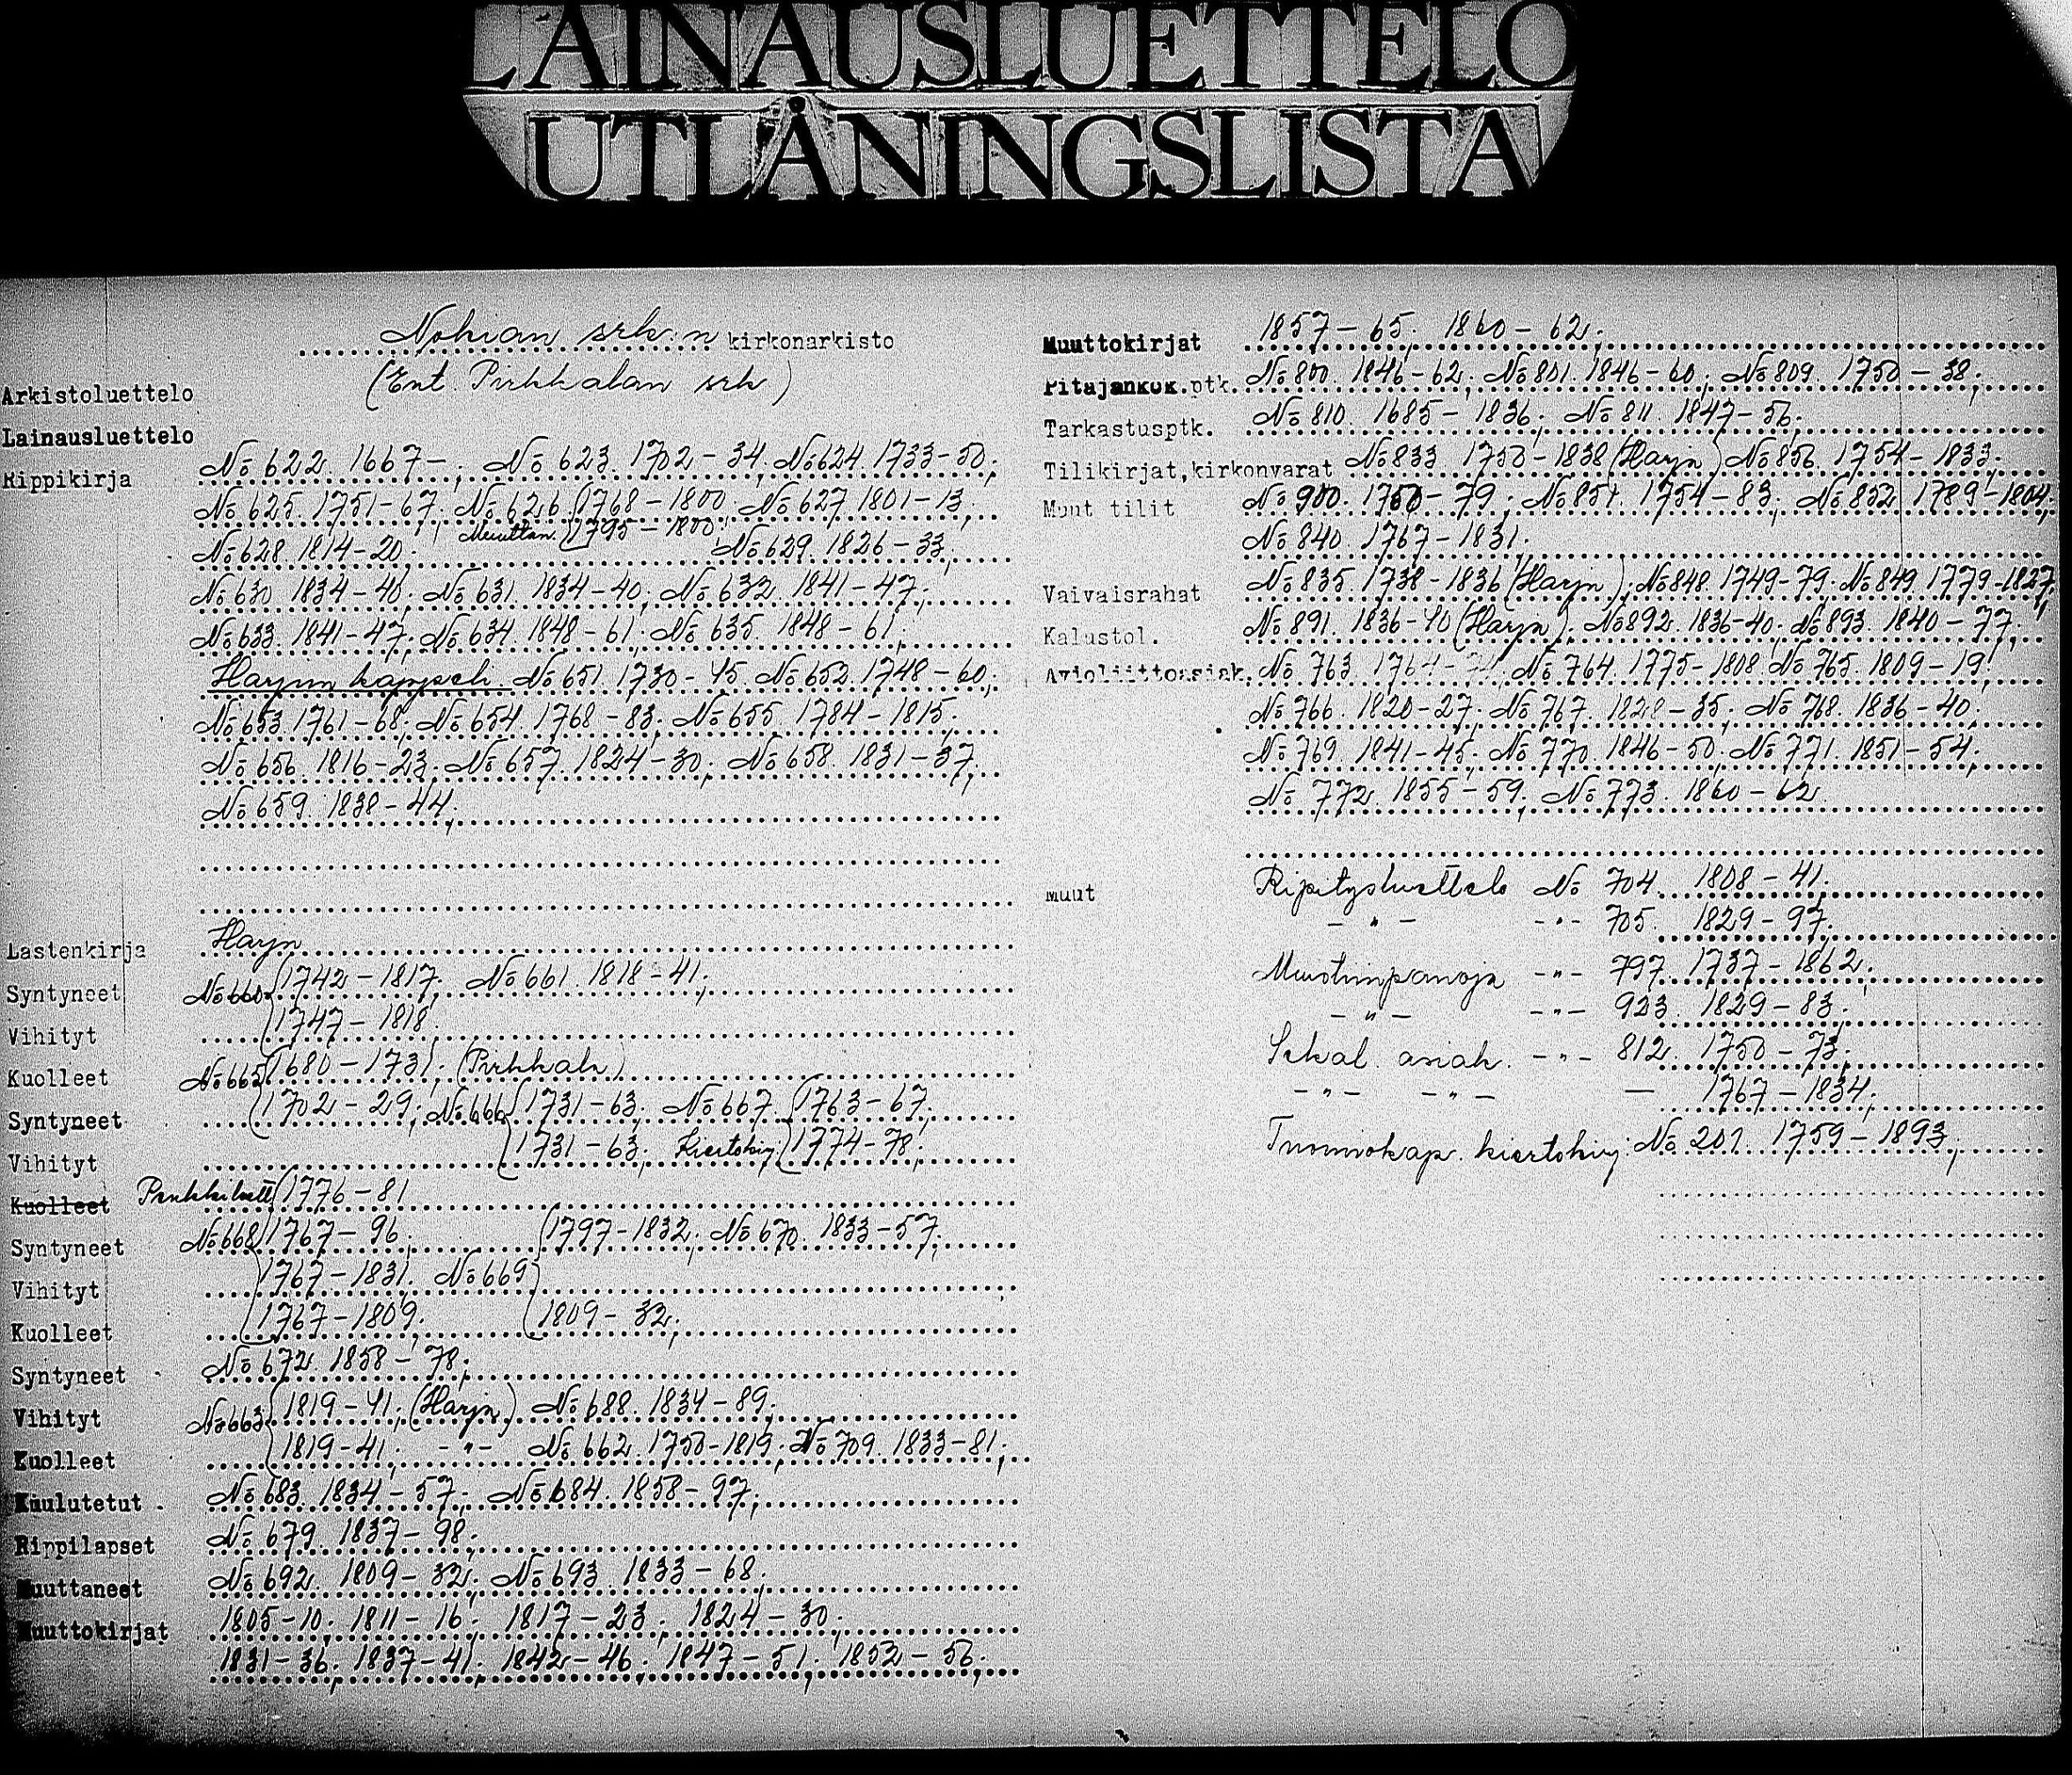 LAINAUSLUETTELO
UTLÅNINGSLISTA
Nokian srk:n kirkonarkisto
(Ent. Pirkkalan srk)
Arkistoluettelo
Lainausluettelo
Rippikirja No 622. 1667-; No 623. 1702-34; No 624. 1733-50;
No 625. 1751-67; No 626. 1768-1800; No 627. 1801-13;
Muuttan. 1795-1800
No 628. 1814-20; No 629. 1826-33;
No 630. 1834-40; No 631. 1834-40; No 632. 1841-47;
No 633. 1841-47; No 634. 1848-61; No 635. 1848-61;
Harjun kappeli. No 651. 1730-45. No 652. 1748-60;
No 653. 1761-68; No 654. 1768-83; No 655. 1784-1815;
No 656. 1816-23; No 657. 1824-30; No 658. 1831-37;
No 659. 1838-44;
Lastenkirja Harju
Syntyneet No 660 1742-1817; No 661. 1818-41;
Vihityt 1747-1818
Kuolleet No 665 1680-1731. (Pirkkala)
Syntyneet 1702-29; No 666 1731-63; No 667. 1763-67;
Vihityt 1731-63; Kiertokirj. 1774-78;
Kuolleet Penkkiluett. 1776-81
Syntyneet No 668 1767-96; 1797-1832; No 670. 1833-57;
Vihityt 1767-1831. No 669
Kuolleet 1767-1809; 1809-32;
Syntyneet No 672. 1858-78;
Vihityt No 663 1819-41; (Harju) No 688. 1834-89;
Kuolleet 1819-41; -"- No 662. 1750-1819; No 709. 1833-81;
Kuulutetut No 683. 1834-57; No 684. 1858-97;
Rippilapset No 679. 1837-98;
Muuttaneet No 692. 1809-32; No 693. 1833-68;
Muuttokirjat 1805-10; 1811-16; 1817-23; 1824-30;
1831-36; 1837-41; 1842-46; 1847-51; 1852-56;
Muuttokirjat 1857-65; 1860-62;
Pitäjänkok.ptk. No 800. 1846-62; No 801. 1846-60; No 809. 1750-38;
Tarkastusptk. No 810. 1685-1836; No 811. 1847-56;
Tilikirjat,kirkonvarat No 833. 1750-1838 (Harju) No 856. 1754-1833;
Muut tilit No 900. 1750-79; No 851. 1754-83; No 852. 1789-1804;
No 840. 1767-1831;
Vaivaisrahat No 835. 1738-1836 (Harju); No 848. 1749-79; No 849. 1779-1827;
Kalustol. No 891. 1836-40 (Harju); No 892. 1836-40; No 893. 1840-77;
Avioliittoasiak. No 763. No 764. 1775-1808. No 765. 1809-19;
No 766. 1820-27; No 767. 1828-35; No 768. 1836-40;
No 769. 1841-45; No 770. 1846-50; No 771. 1851-54;
No 772. 1855-59; No 773. 1860-62
Muut Ripitysluettelo No 704. 1808-41.
-"- -"- 705. 1829-97.
Muistiinpanoja -"- 797. 1737-1862.
-"- -"- 923. 1829-83.
Sekal. asiak. -"- 812. 1750-73;
-"- -"- — 1767-1834;
Tuomiokap. kiertokirj. No 201. 1759-1893;